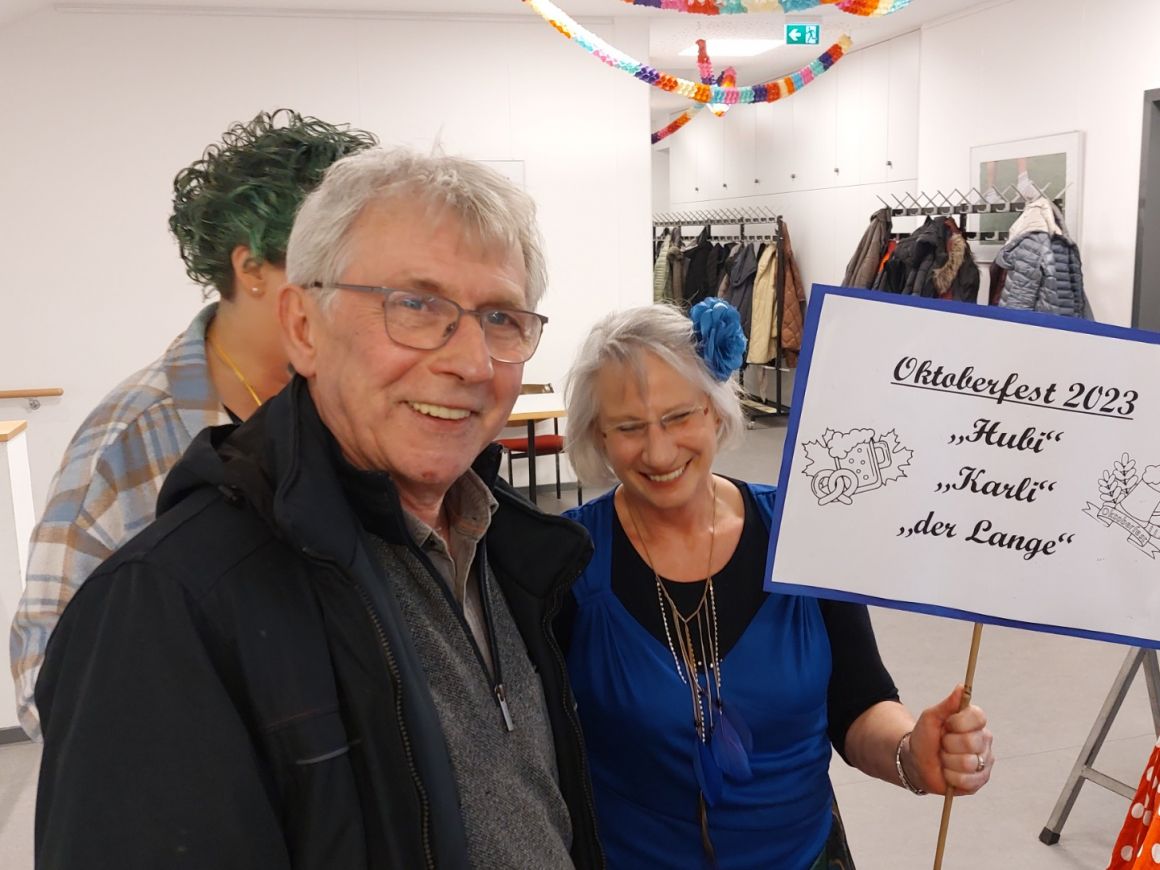 Oktoberfest 2023
„Hubi“
„Karli“
„der Lange“
Oktoberfest